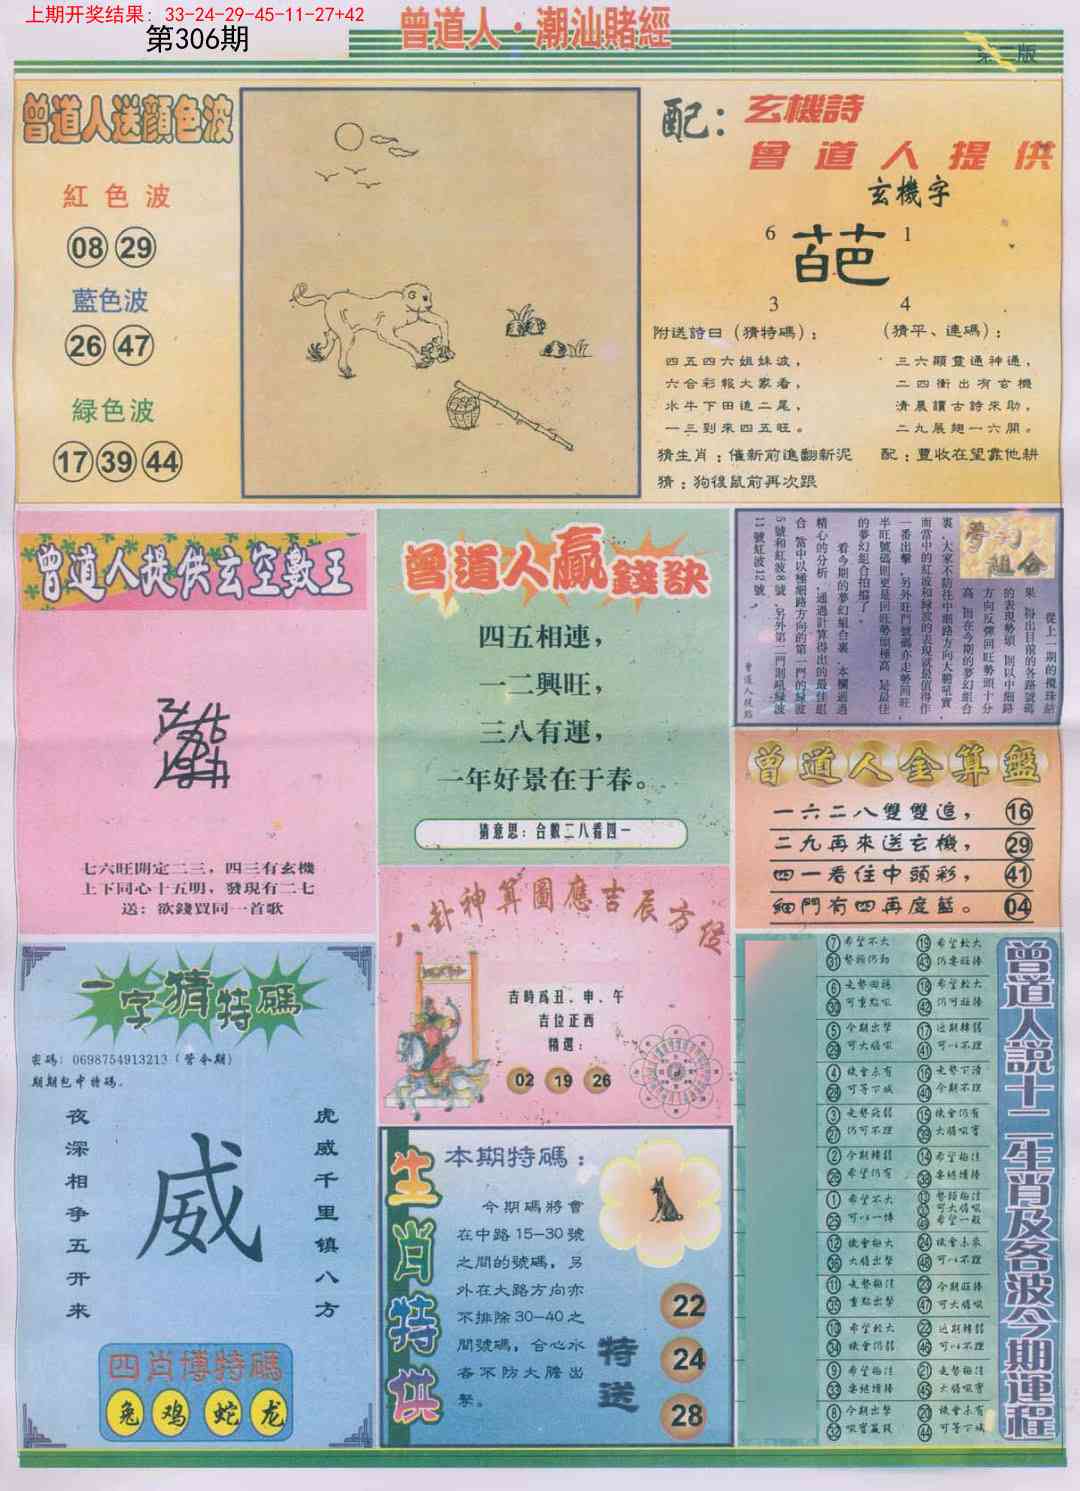 上期开奖结果: 33-24-29-45-11-27+42
第306期
曾道人·潮汕賭經
曾道人送顏色波
紅色波
08 29
藍色波
26 47
緑色波
17 39 44
配:
玄機詩
曾道人提供
玄機字
6 1
3 4
附送詩曰(猜特碼):
四五四六姐妹波,
六合彩報大家看,
水牛下田遠二尾,
一三到來四五旺。
(猜平、連碼):
三六顯靈通神通,
二四衝出有玄機
清晨讀古詩來助,
二九展翅一六開。
猜生肖:催新前進翻新泥
配:豐收在望靠他耕
猜:狗後鼠前再次跟
曾道人提供玄空數王
七六旺開定二三,四三有玄機
上下同心十五明,發現有二七
送:欲錢買同一首歌
曾道人贏錢訣
四五相連,
一二興旺,
三八有運,
一年好景在于春。
猜意思:合數二八看四一
夢幻組合
從上一期的攪珠結
果,得出目前的各路號碼
的表現勢頭,則以中細路
方向反彈回旺勢頭十分
高,而在今期的夢幻組合
裏,大家不防往中細路方向大膽吼實,
而當中的紅波和緑波的表現就最值得作
一番出擊,另外旺門號碼亦走勢回旺,
半旺號碼則更是回旺勢頭極高,是最佳
的夢幻組合拍擋了。
看今期的夢幻組合裏,本欄通過
精心的分析,通過計算得出的最佳組
合,當中以極細路方向的第一門的緑波
5號和紅波8號,另外第二門則吼緑波
11號紅波12號。
曾道人金算盤
一六二八雙雙追, 16
二九再來送玄機, 29
四一看住中頭彩, 41
細門有四再度藍。 04
八卦神算圖應吉辰方位
吉時爲丑、申、午
吉位正西
精選:
02 19 26
一字猜特碼
密碼: 0698754913213(管今期)
期期包中特碼。
夜深相争五开来
威
虎威千里镇八方
四肖博特碼
兔 鸡 蛇 龙
生肖特供
本期特碼:
今期碼將會
在中路15-30號
之間的號碼,另
外在大路方向亦
不排除30-40之
間號碼,合心水
者不防大膽出
擊。
特送
22
24
28
曾道人説十二生肖及各波今期運程
7 希望不大 19 希望較大
31 勢頭仍勁 43 仍要旺捧
6 走勢回穩 18 希望較大
30 可重點吼 42 仍可旺捧
5 今期出擊 17 近期轉弱
29 可大膽吼 41 可以不理
4 機會未有 16 走勢下滑
28 可等下城 40 今期不理
3 走勢疲弱 15 機會仍有
27 仍可不理 39 大膽吼實
2 今期轉弱 14 希望極佳
26 希望仍有 38 要繼續捧
1 希望不大 13 勢頭極佳
25 可以一博 37 可大膽吼
49 希望一般
12 機會極大 24 機會未來
36 大膽出擊 48 可以不理
11 走勢極佳 23 今期旺捧
35 重點出擊 47 可大膽吼
10 希望較大 22 近期轉弱
34 機會仍弱 46 可以不理
9 希望極佳 21 走勢極佳
33 要繼續捧 45 大膽吼實
8 今期出擊 20 機會未有
32 吼實贏錢 44 可等下城